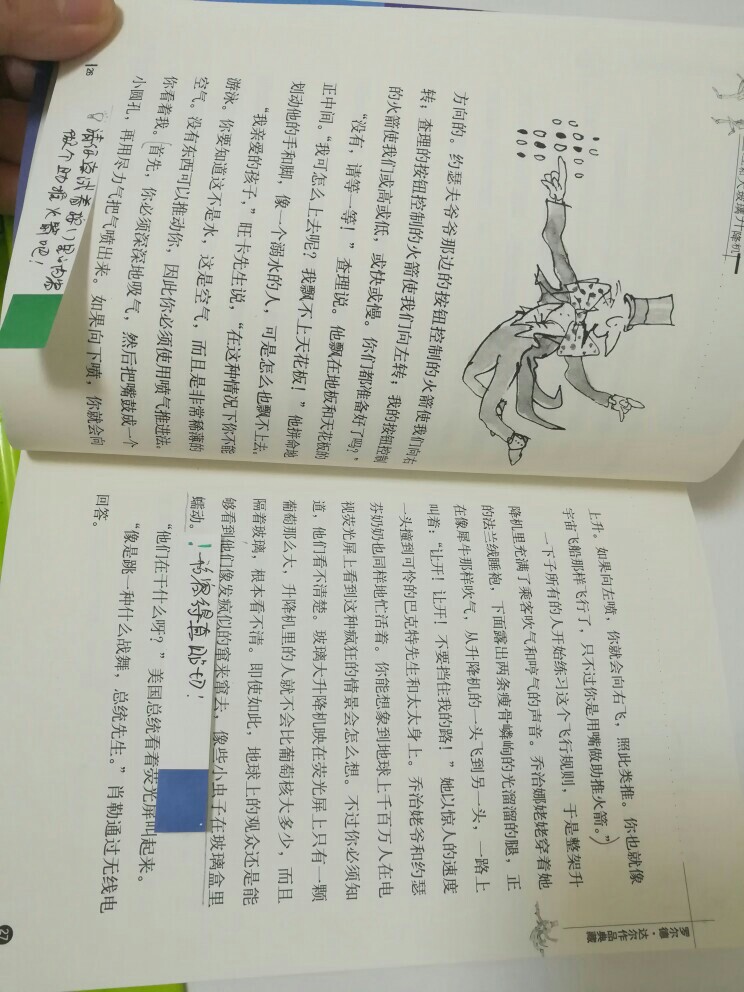 和大玻璃升降机
方向的。约瑟夫爷爷那边的按钮控制的火箭使我们向右
转；查理的按钮控制的火箭使我们向左转；我的按钮控制
的火箭使我们或高或低，或快或慢。你们都准备好了吗？”
“没有，请等一等！”查理说。他飘在地板和天花板的
正中间。“我可怎么上去呢？我飘不上天花板！”他拼命地
划动他的手和脚，像一个溺水的人，可是怎么也飘不上去。
“我亲爱的孩子，”旺卡先生说，“在这种情况下你不能
游泳。你要知道这不是水，这是空气，而且是非常稀薄的
空气。没有东西可以推动你，因此你必须使用喷气推进法。
你看着我。首先，你必须深深地吸气，然后把嘴鼓成一个
小圆孔，再用尽力气把气喷出来。如果向下喷，你就会向
做个助推火箭吧！
罗尔德·达尔作品典藏
上升。如果向左喷，你就会向右飞，照此类推。你也就像
宇宙飞船那样飞行了，只不过你是用嘴做助推火箭。”
一下子所有的人开始练习这个飞行规则，于是整架升
降机里充满了乘客吹气和哼气的声音。乔治娜姥姥穿着她
的法兰绒睡袍，下面露出两条瘦骨嶙峋的光溜溜的腿，正
在像犀牛那样吹气，从升降机的一头飞到另一头，一路上
叫着：“让开！让开！不要挡住我的路！”她以惊人的速度
一头撞到可怜的巴克特先生和太太身上。乔治姥爷和约瑟
芬奶奶也同样地忙活着。你能想象到地球上千百万人在电
视荧光屏上看到这种疯狂的情景会怎么想。不过你必须知
道，他们看不清楚。玻璃大升降机映在荧光屏上只有一颗
葡萄那么大，升降机里的人就不会比葡萄核大多少，而且
隔着玻璃，根本看不清。即使如此，地球上的观众还是能
够看到他们像发疯似的窜来窜去，像些小虫子在玻璃盒里
蠕动。
“他们在干什么呀？”美国总统看着荧光屏叫起来。
“像是跳一种什么战舞，总统先生。”肖勒通过无线电
回答。
27